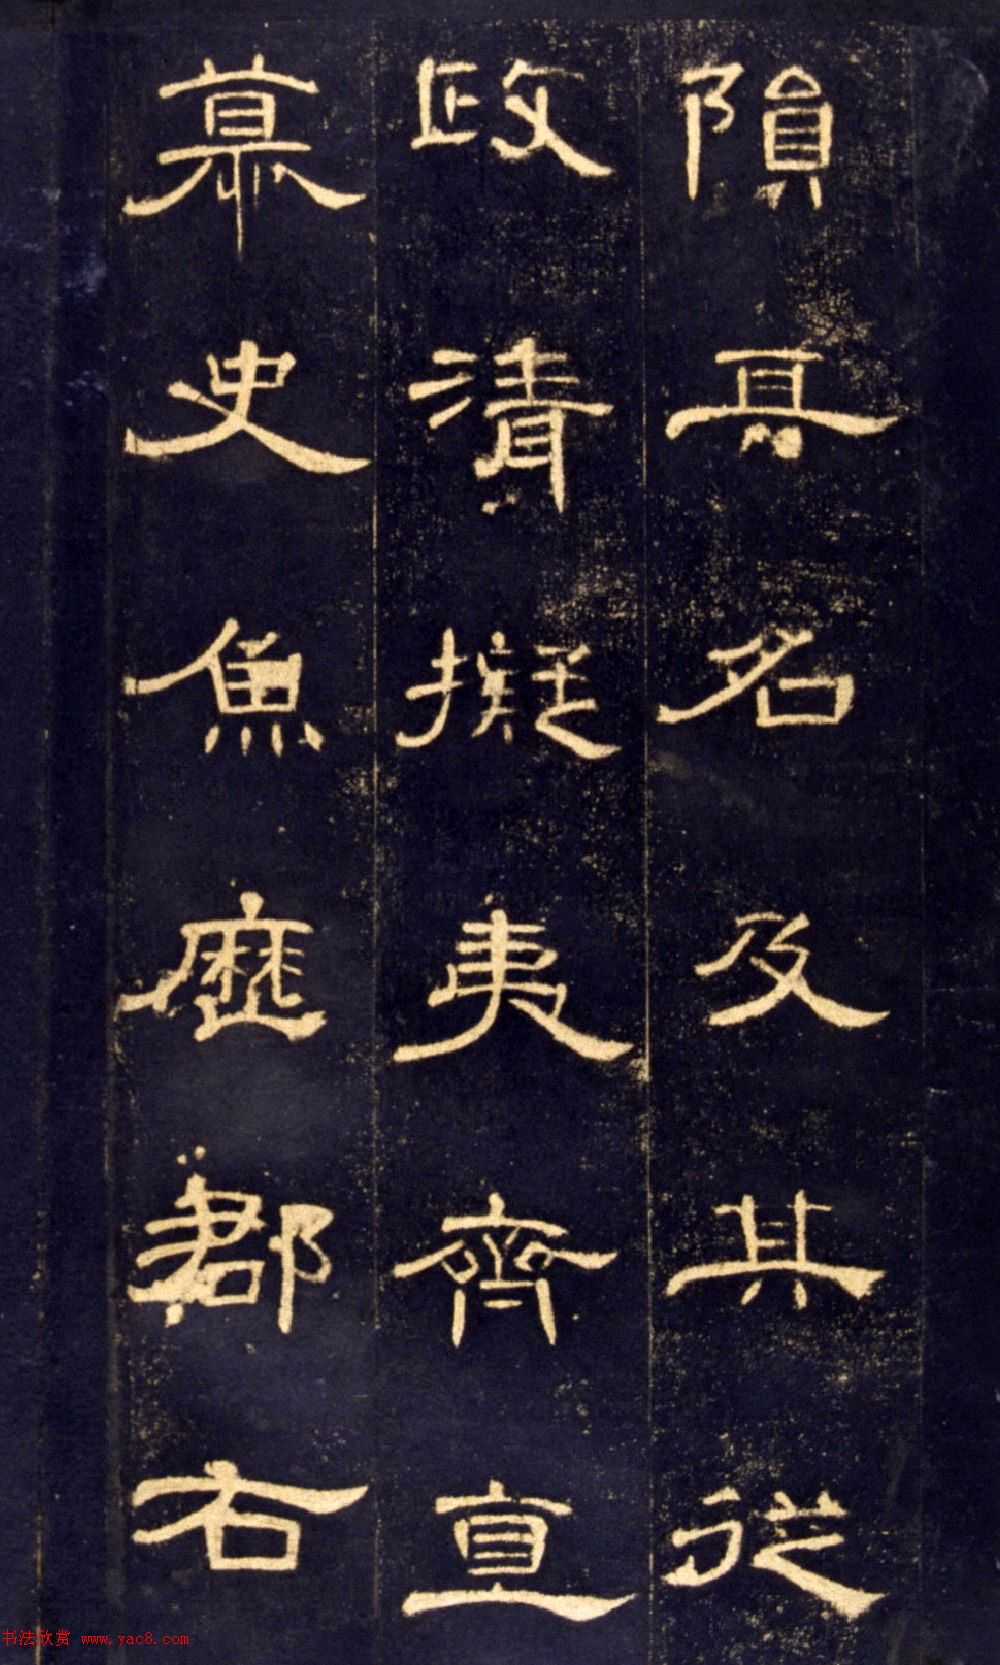 隕其名及其從
政清擬夷齊直
慕史魚歷郡右
书法欣赏 www.yac8.com